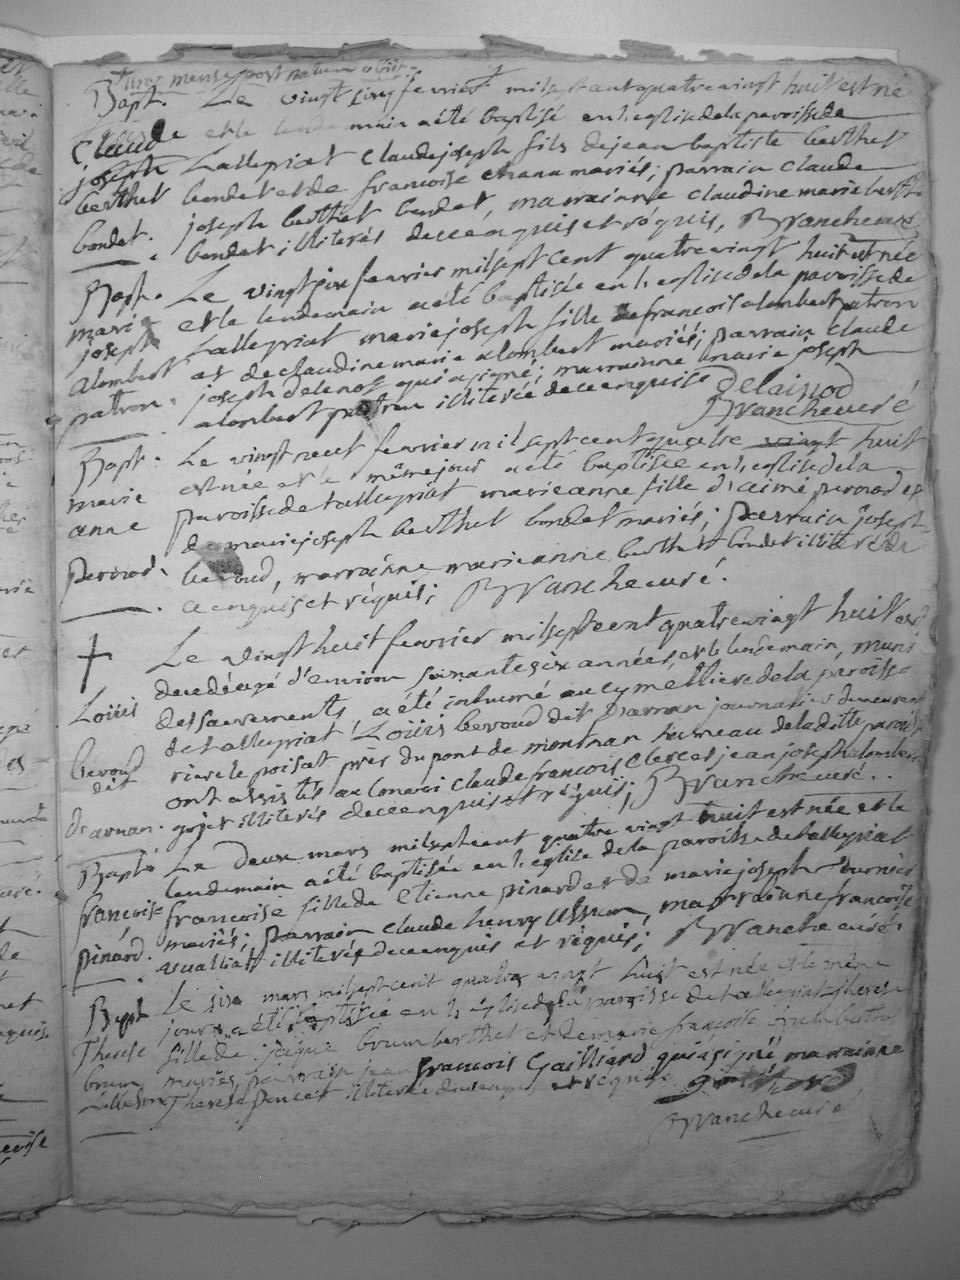 unus mense post natum obiit
Bapt. Le vingt cinq fevrier mil sept cent quatre vingt huit est né
Claude et le lendemain a été baptisé en l'eglise de la paroisse de
joseph Lalleyriat Claude joseph fils de jean baptiste berthet
berthet bondet et de francoise chana mariés; parrain claude
bondet. joseph berthet bondet, marrainne claudine marie berthet
bondet illiterés de ce enquis et réquis, Branche curé
Bapt. Le vingt six fevrier mil sept cent quatre vingt huit est née
marie et le lendemain a été baptisée en l'eglise de la paroisse de
joseph Lalleyriat marie joseph fille de francois alombert patron
alombert et de claudine marie alombert mariés; parrain claude
patron. joseph qui a signé; marrainne marie joseph
alombert patron illiterée de ce enquise
Branche curé
Bapt. Le vingt neuf fevrier mil sept cent quatre vingt huit
marie est née et le même jour a été baptisée en l'eglise de la
anne paroisse de Lalleyriat marie anne fille d'aimé pernod et
de marie joseph berthet bondet mariés; parrain joseph
pernod. beroud, marrainne marie anne berthet bondet illiterés de
ce enquis et réquis; Branche curé.
Le vingt huit fevrier mil sept cent quatre vingt huit est
decedé agé d'environ soixante six années, et le lendemain, muni
Loüis des sacrements, a été inhumé au cymettiere de la paroisse
de Lalleyriat Loüis beroud dit D'arnan journalier demeurant
beroud riere le poisat près du pont de hameau de la ditte paroisse
dit ont assistés au convoi claude francois clerc et jean joseph alombert
D'arnan. gojet illiterés de ce enquis et réquis; Branche curé.
Bapt. Le deux mars mil sept cent quatre vingt huit est née et le
lendemain a été baptisée en l'eglise de la paroisse de Lalleyriat
françoise francoise fille de Etienne pinard et de marie joseph
pinard. mariés; parrain claude henry, marrainne francoise
illiterés de ce enquis et réquis; Branche curé.
Bapt Le six mars mil sept cent quatre vingt huit est née et le même
Therese jour a été baptisée en l'église de la paroisse de Lalleyriat therese
brun fille de brun berthet et de marie francoise
mariés, parrain jean francois Gailliard qui a signé marrainne
Therese poncet illiterée de ce enquise et requise
Branche curé